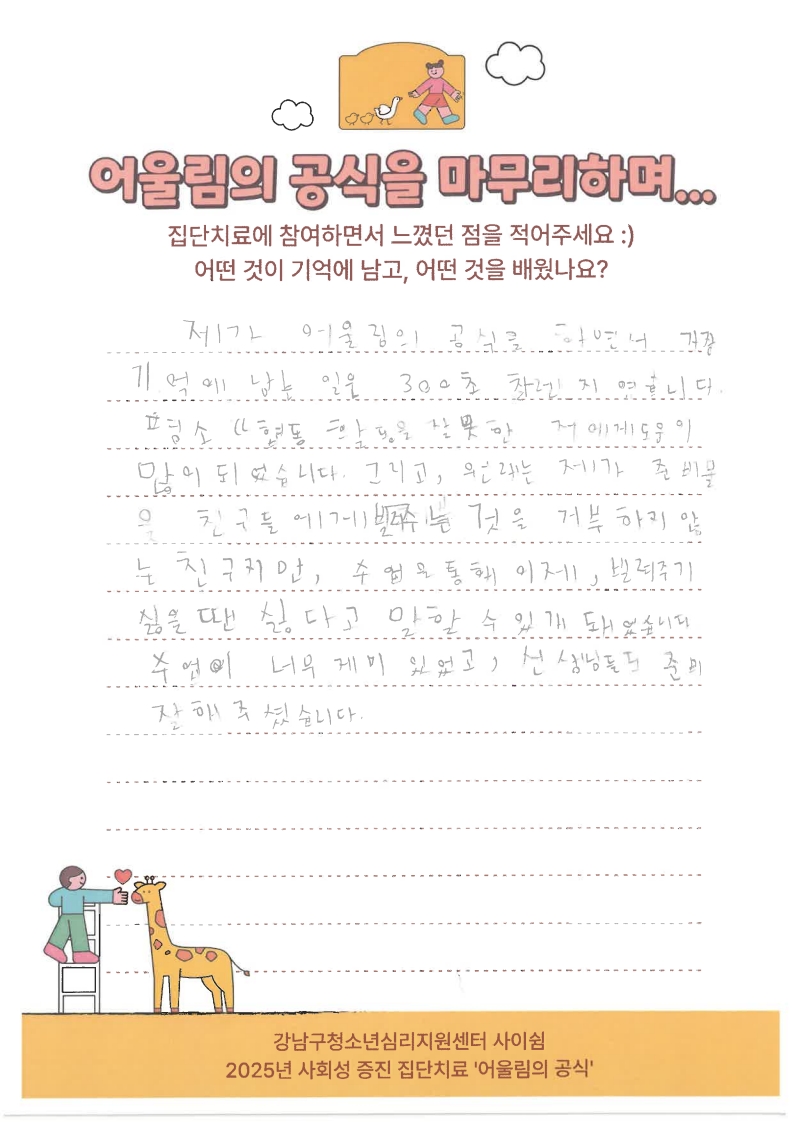 어울림의 공식을 마무리하며...
집단치료에 참여하면서 느꼈던 점을 적어주세요 :)
어떤 것이 기억에 남고, 어떤 것을 배웠나요?
제가 어울림의 공식을 하면서 가장
기억에 남는 일은 300초 챌린지 였습니다.
평소 "협동 활동을 잘 못한 저에게 도움이
많이 되었습니다. 그리고, 원래는 제가 준비물
을 친구들에게 빌려주는 것을 거부하지 않
는 친구지만, 수업을 통해 이제, 빌려주기
싫을 땐 싫다고 말할 수 있개 돼었습니다
수업이 너무 제미 있었고, 선생님들도 준비
잘 해 주셨습니다.
강남구청소년심리지원센터 사이쉼
2025년 사회성 증진 집단치료 '어울림의 공식'